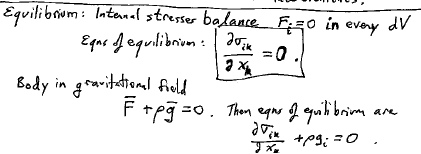 Equilibrium: Internal stresses balance F_i = 0 in every dV
Eqns of equilibrium: ∂σ_ik / ∂x_k = 0.
Body in gravitational field
F̄ + ρḡ = 0. Then eqns of equilibrium are
∂σ_ik / ∂x_k + ρg_i = 0.